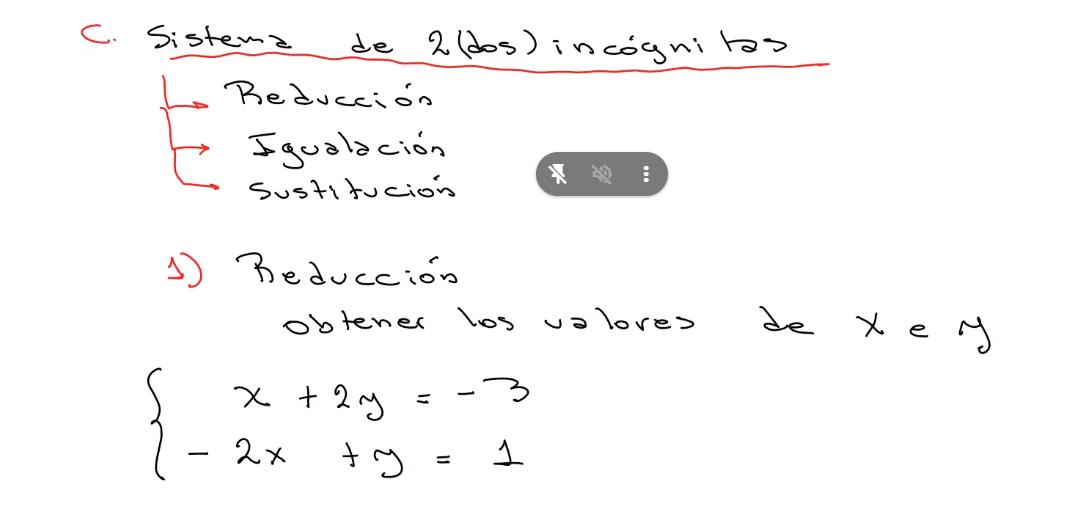 C. Sistema de 2(dos) incógnitas
Reducción
Igualación
Sustitución
1) Reducción
obtener los valores de x e y
x + 2y = -3
- 2x + y = 1